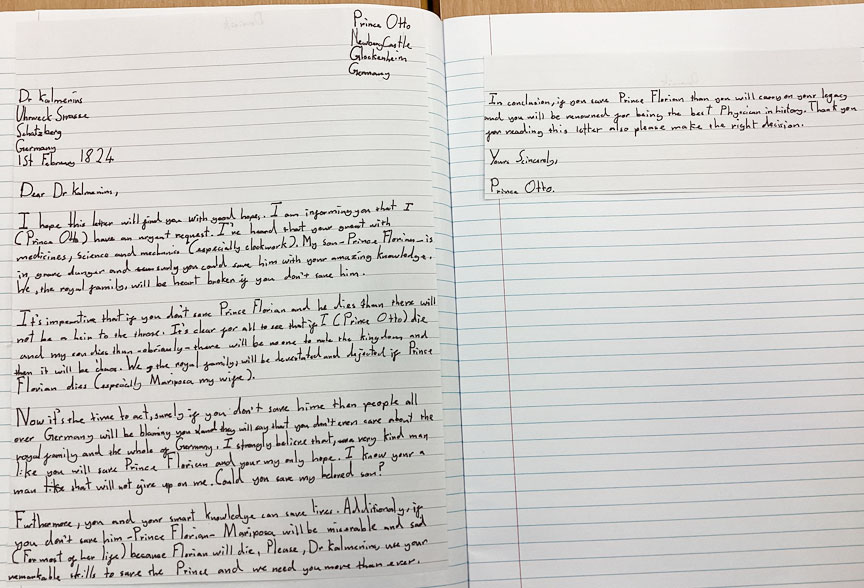 Prince Otto
Newburg Castle
Glockenheim
Germany
Dr Kalmenius
Uhrweck Strasse
Schatzberg
Germany
1st February 1824
Dear Dr Kalmenius,
I hope this letter will find you with good hope,. I am informing you that I
(Prince Otto) have an urgent request. I've heard that your great with
medicines, science and mechanics (especially clockwork). My son-Prince Florian-is
in grave danger and surely you could save him with your amazing knowledge.
We, the royal family, will be heart broken if you don't save him.
It's imperative that if you don't save Prince Florian and he dies than there will
not be a heir to the throne. It's clear for all to see that if I (Prince Otto) die
and my son dies than-obviously-there will be no one to rule the kingdom and
then it will be chaos. We, the royal family, will be devastated and dejected if Prince
Florian dies (especially Mariposa my wife).
Now it's the time to act, surely if you don't save hime then people all
over Germany will be blaming you and they will say that you don't even care about the
royal family and the whole of Germany. I strongly believe that, a very kind man
like you will save Prince Florian and your my only hope. I know your a
man like that will not give up on me. Could you save my beloved son?
Furthermore, you and your smart knowledge can save lives. Additionaly, if
you don't save him -Prince Florian- Mariposa will be miserable and sad
(For most of her life) because Florian will die, Please, Dr Kalmenius, use your
remarkable skills to save the Prince and we need you more than ever.
In conclusion, if you save Prince Florian than you will carry on your legacy
and you will be renowned for being the best Physician in history. Thank you
for reading this letter also please make the right decision.
Yours Scincerely,
Prince Otto.